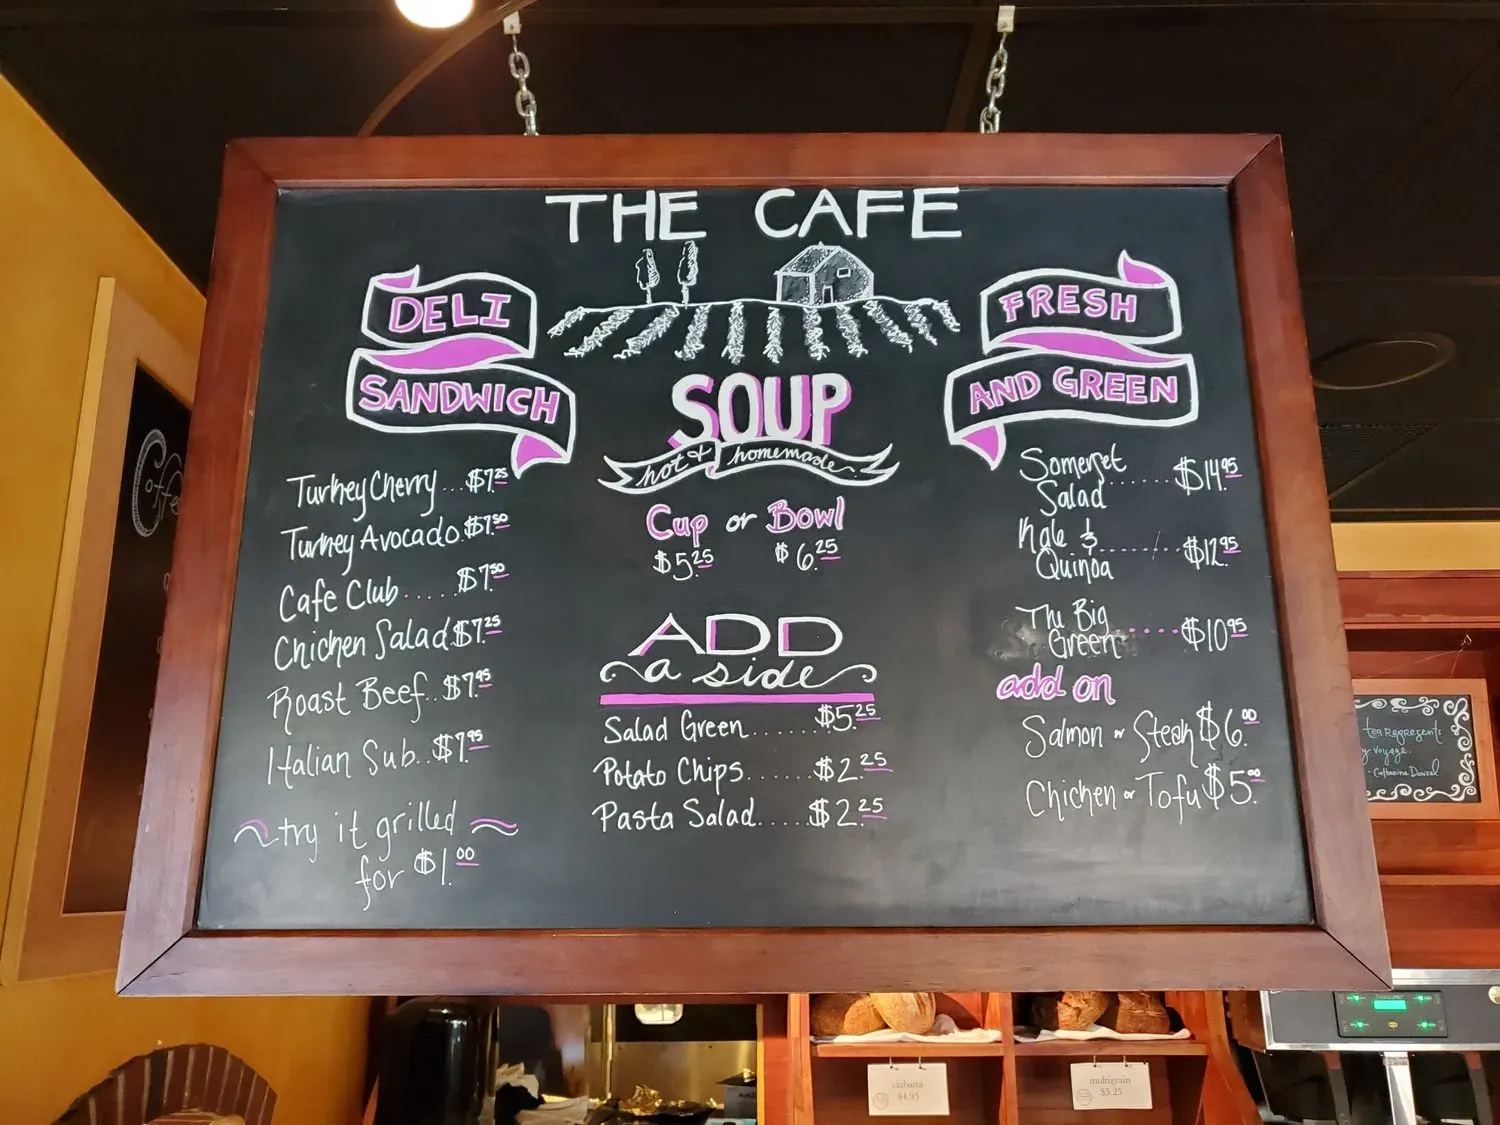 THE CAFE
DELI
SANDWICH
Turkey Cherry...$7.25
Turkey Avocado.$7.50
Cafe Club.....$7.50
Chicken Salad $7.25
Roast Beef..$7.95
Italian Sub..$7.95
~try it grilled~
for $1.00
SOUP
hot & homemade
Cup or Bowl
$5.25 $6.25
ADD
a side
Salad Green......$5.25
Potato Chips......$2.25
Pasta Salad.....$2.25
FRESH
AND GREEN
Somerset
Salad......$14.95
Kale &
Quinoa........$12.95
The Big
Green.....$10.95
add on
Salmon or Steak $6.00
Chicken or Tofu $5.00
Coffee
tea represents
y voyage.
ciabatta
$4.95
multigrain
$5.25